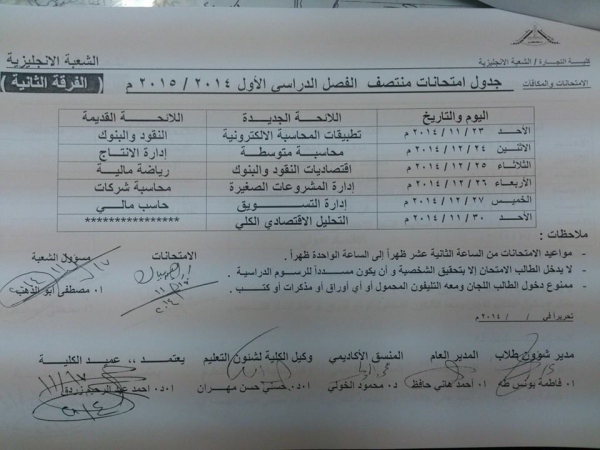 كلية التجارة / الشعبة الانجليزية
الشعبة الانجليزية
الامتحانات والمكافآت
جدول امتحانات منتصف الفصل الدراسى الأول ٢٠١٤ / ٢٠١٥ م
( الفرقة الثانية )
اليوم والتاريخ اللائحة الجديدة اللائحة القديمة
الأحد ٢٣ / ١١ / ٢٠١٤ م تطبيقات المحاسبة الالكترونية النقود والبنوك
الاثنين ٢٤ / ١٢ / ٢٠١٤ م محاسبة متوسطة إدارة الانتاج
الثلاثاء ٢٥ / ١٢ / ٢٠١٤ م اقتصاديات النقود والبنوك رياضة مالية
الأربعاء ٢٦ / ١٢ / ٢٠١٤ م إدارة المشروعات الصغيرة محاسبة شركات
الخميس ٢٧ / ١٢ / ٢٠١٤ م إدارة التسويق حاسب مالي
الأحد ٣٠ / ١١ / ٢٠١٤ م التحليل الاقتصادي الكلي ****************
ملاحظات :
- مواعيد الامتحانات من الساعة الثانية عشر ظهراً إلى الساعة الواحدة ظهراً .
- لا يدخل الطالب الامتحان إلا بتحقيق الشخصية و أن يكون مسدداً للرسوم الدراسية .
- ممنوع دخول الطالب اللجان ومعه التليفون المحمول أو أي أوراق أو مذكرات أو كتب .
الامتحانات مسؤول الشعبة
أ٠ مصطفى أبو الذهب
تحريراً في / / ٢٠١٤ م
مدير شؤون طلاب المدير العام المنسق الأكاديمي وكيل الكلية لشئون التعليم يعتمد ،، عميد الكلية
أ٠ فاطمة يونس طه أ٠ أحمد هاني حافظ د٠ محمود الخولي أ٠د٠ حسن مهران أ٠د٠ أحمد عبد الرحيم زردق